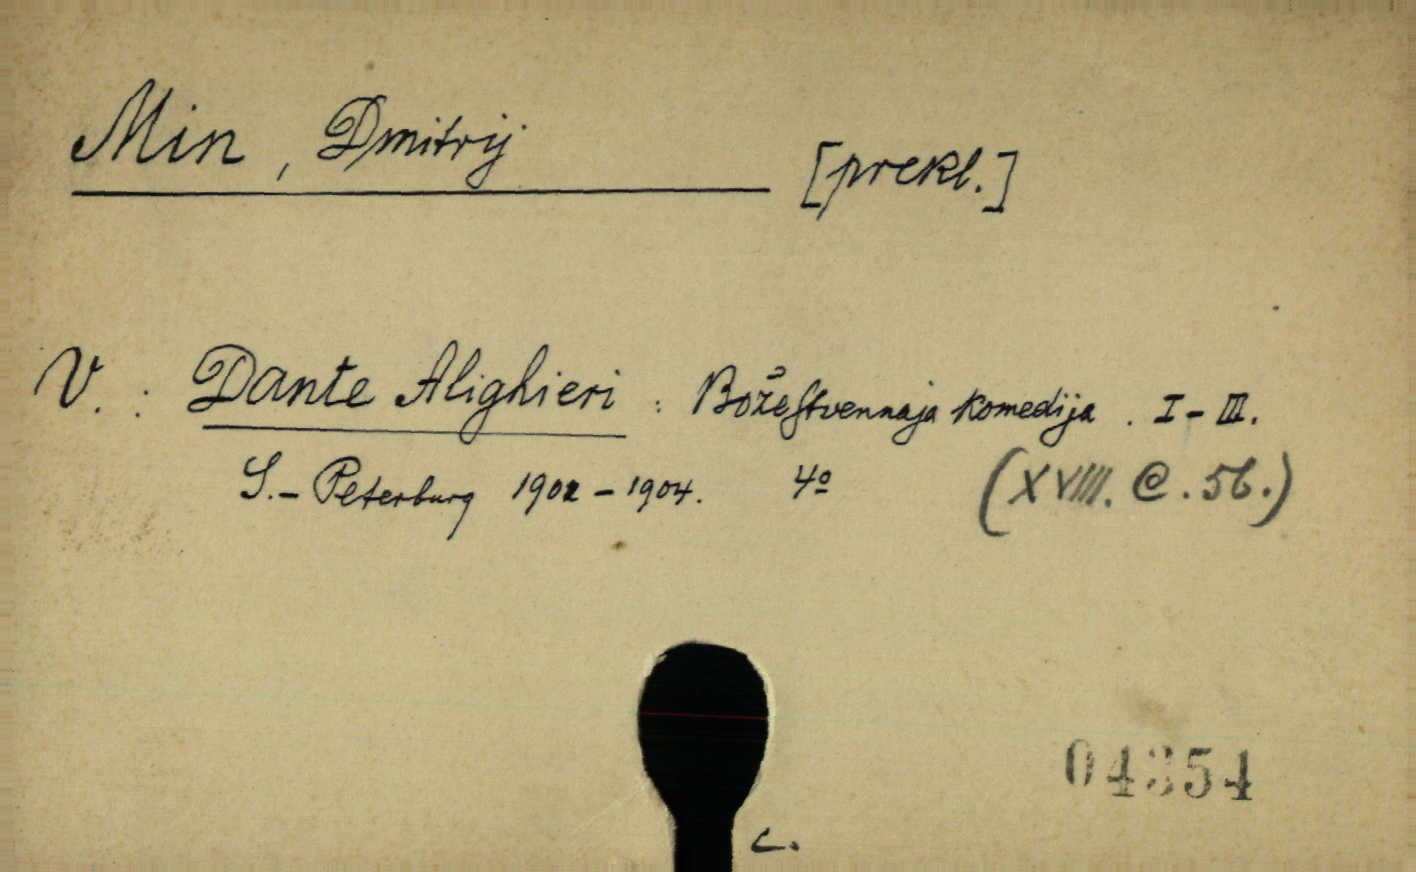 Min, Dmitrij [prekl.]
V. : Dante Alighieri : Božestvennaja komedija. I - III.
S.- Peterburg 1902 - 1904. 4º (XVIII. C. 56.)
04354
c.